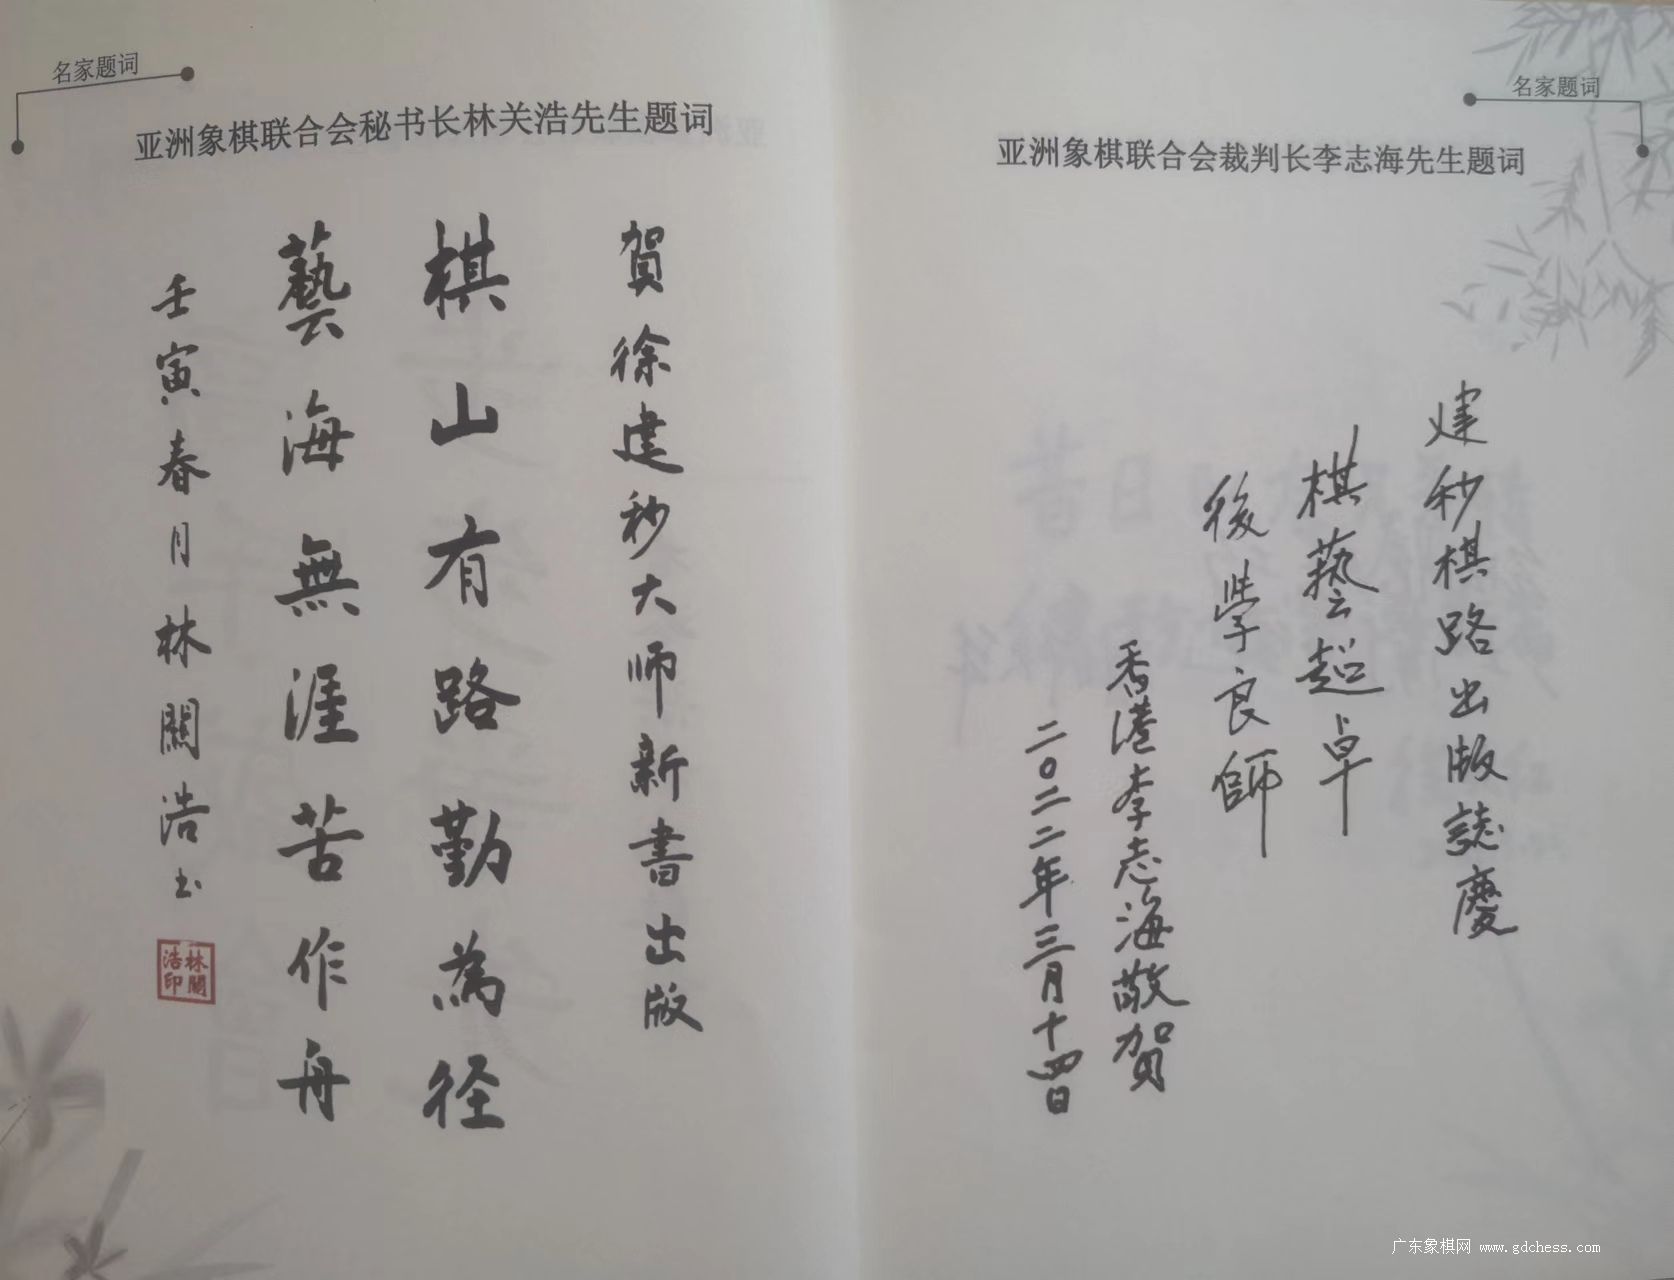 名家题词
亚洲象棋联合会秘书长林关浩先生题词
賀徐建秒大师新書出版
棋山有路勤為径
藝海無涯苦作舟
壬寅春月林關浩书
林關
浩印
名家题词
亚洲象棋联合会裁判长李志海先生题词
建秒棋路出版誌慶
棋藝超卓
後學良師
香港李志海敬賀
二〇二二年三月十四日
广东象棋网 www.gdchess.com